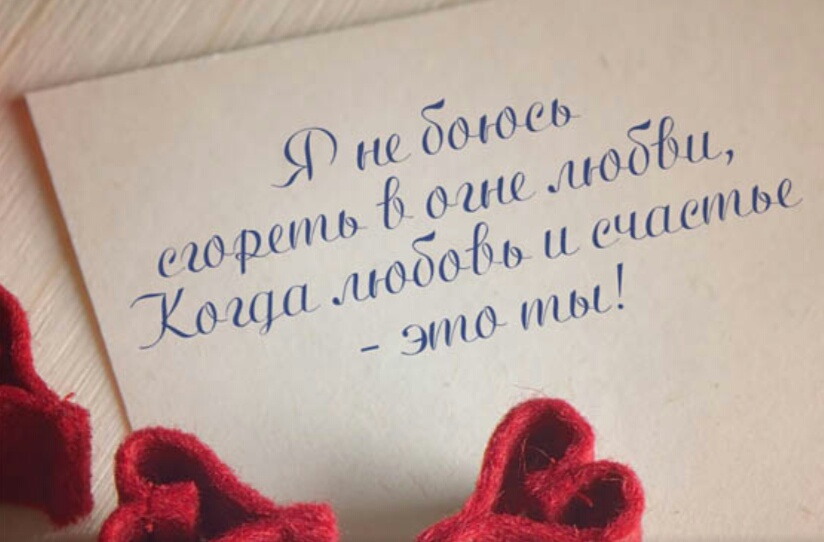 Я не боюсь
сгореть в огне любви,
Когда любовь и счастье
- это ты!